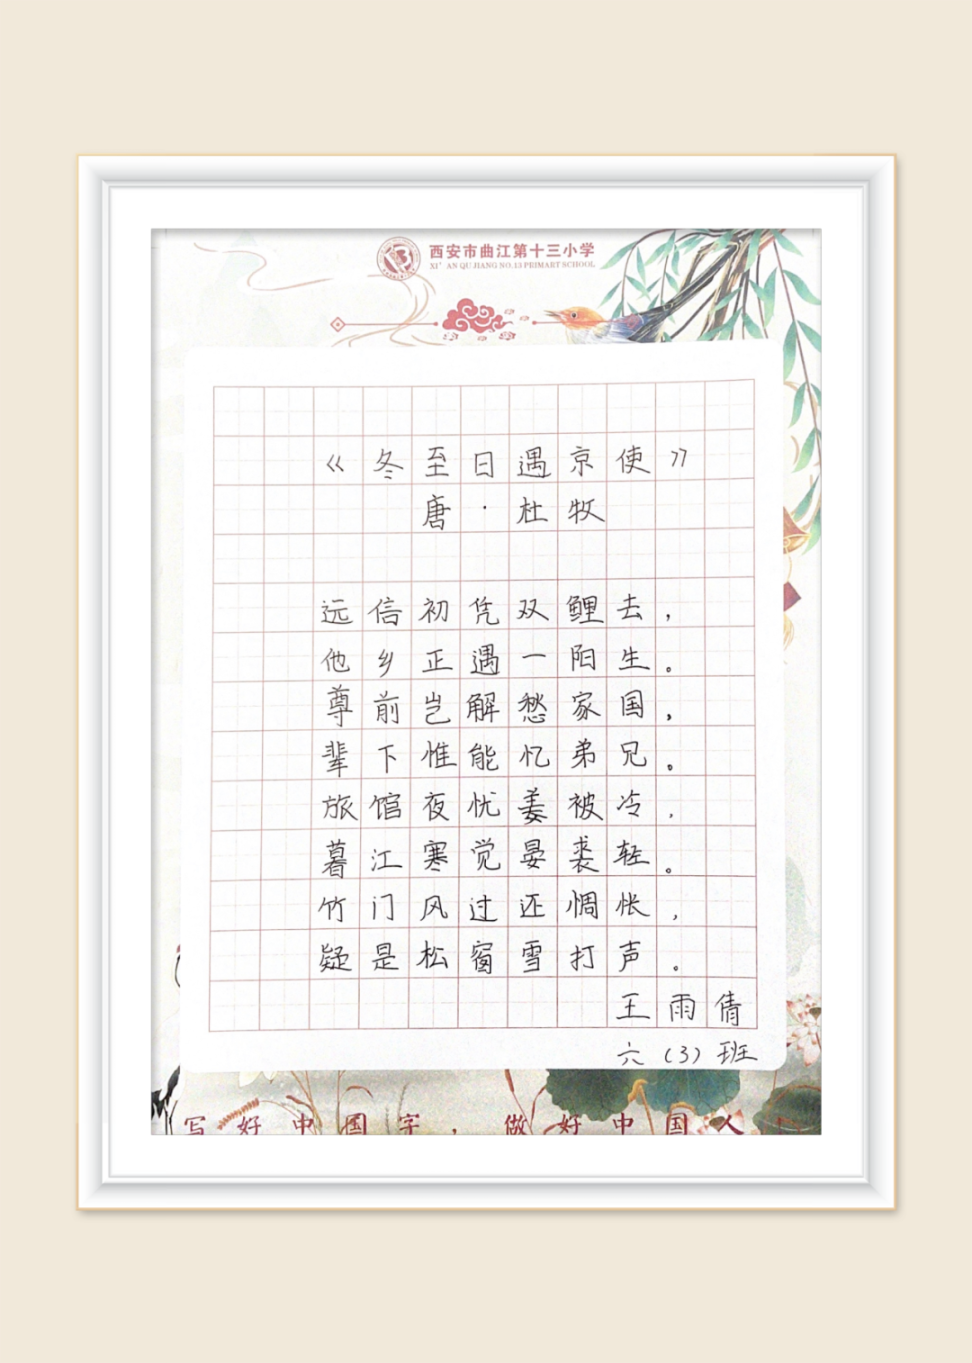 西安市曲江第十三小学
XI'AN QU JIANG NO.13 PRIMART SCHOOL
《冬至日遇京使》
唐·杜牧
远信初凭双鲤去，
他乡正遇一阳生。
尊前岂解愁家国，
辈下惟能忆弟兄。
旅馆夜忧姜被冷，
暮江寒觉晏裘轻。
竹门风过还惆怅，
疑是松窗雪打声。
王雨倩
六（3）班
写好中国字，做好中国人